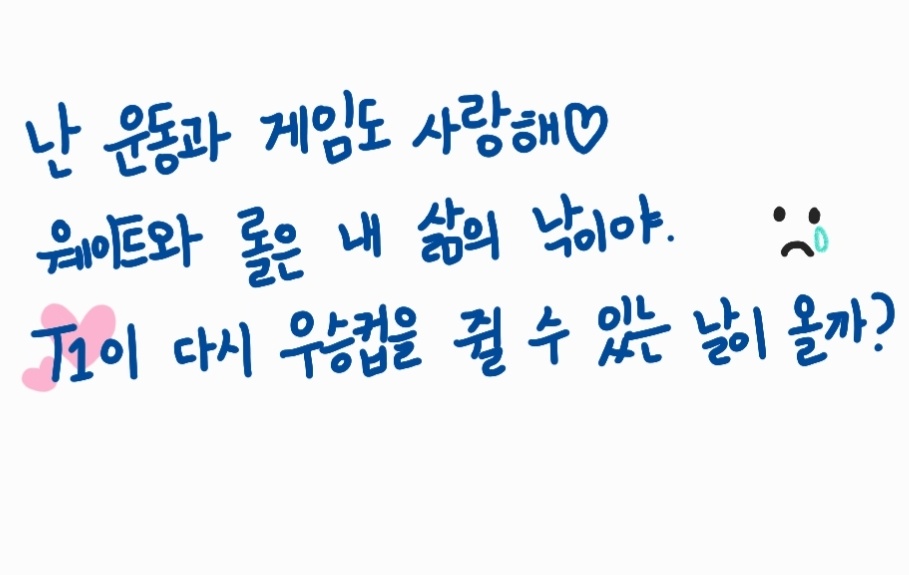 난 운동과 게임도 사랑해♡
웨이트와 롤은 내 삶의 낙이야.
T1이 다시 우승컵을 쥘 수 있는 날이 올까?